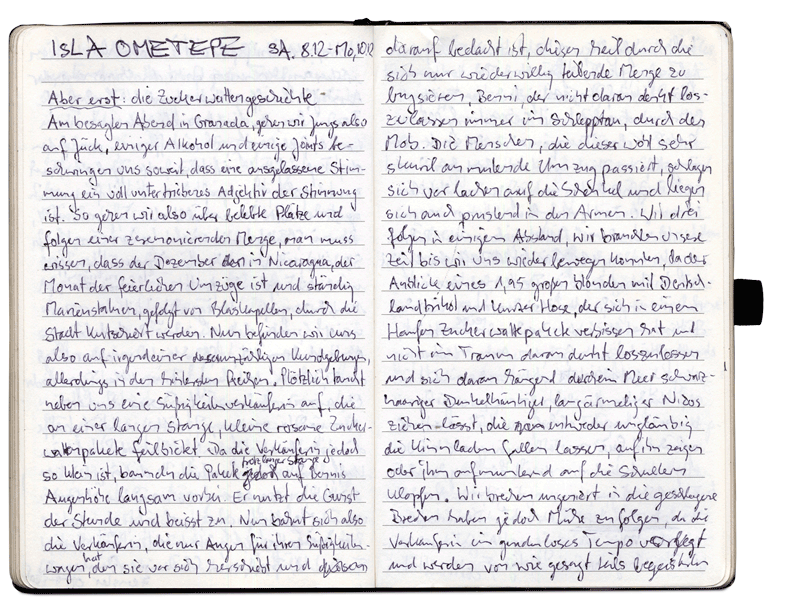 ISLA OMETEPE SA, 8.12-Mo, 10.12
Aber erst: die Zuckerwattengeschichte
Am besagten Abend in Granada, gehen wir Jungs also
auf Jück, einiger Alkohol und einige Joints be-
schwingen uns soweit, dass eine ausgelassene Stim-
mung ein voll untertriebenes Adjektiv der Stimmung
ist. So gehen wir also über belebte Plätze und
folgen einer zeremonierenden Menge, man muss
wissen, dass der Dezember in Nicaragua, der
Monat der feierlichen Umzüge ist und ständig
Marienstatuen, gefolgt von Blaskapellen, durch die
Stadt kutschiert werden. Nun befinden wir uns
also auf irgendeiner Kundgebung,
allerdings in den hintersten Reihen. Plötzlich taucht
neben uns eine Süßigkeitenverkäuferin auf, die
an einer langen Stange, kleine rosane Zucker-
wattepakete feilbietet. Da die Verkäuferin jedoch
so klein ist, baumeln die Pakete trotz langer Stange auf Bennis
Augenhöhe langsam vorbei. Er nutzt die Gunst
der Stunde und beisst zu. Nun bahnt sich also
die Verkäuferin, die nur Augen für ihren Süßigkeiten-
wagen hat, den sie vor sich herschiebt und
darauf bedacht ist, diesen heil durch die
sich nur wiederwillig teilende Menge zu
bugsieren, Benni, der nicht daran denkt los-
zulassen immer im Schlepptau, durch den
Mob. Die Menschen, die dieser wohl sehr
skurril anmutende Umzug passiert, schlagen
sich vor lachen auf die Schenkel und liegen
sich auch prustend in den Armen. Wir drei
folgen in einigem Abstand, wir brauchten unsere
Zeit bis wir uns wieder bewegen konnten, da der
Anblick eines 1,95 großen blonden mit Deutsch-
landtrikot und kurzer Hose, der sich in einem
Haufen Zuckerwattepakete verbissen hat und
nicht im Traum daran denkt loszulassen
und sich daran hängend durch ein Meer schwarz-
haariger Dunkelhäutiger, langärmeliger Nicos
ziehen lässt, die entweder ungläubig
die Kinnladen fallen lassen, auf ihn zeigen
oder ihm aufmunternd auf die Schultern
klopfen. Wir brechen ungeniert in die geschlagene
Breschen haben jedoch Mühe zu folgen, da die
Verkäuferin ein gnadenloses Tempo vorlegt
und werden von wie gesagt teils begeisterten